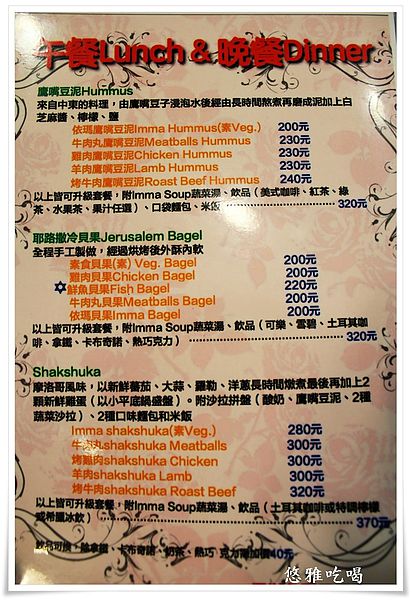 午餐Lunch & 晚餐Dinner
鷹嘴豆泥Hummus
來自中東的料理，由鷹嘴豆子浸泡水後經由長時間熬煮再磨成泥加上白
芝麻醬、檸檬、鹽
依瑪鷹嘴豆泥Imma Hummus(素Veg.) 200元
牛肉丸鷹嘴豆泥Meatballs Hummus 230元
雞肉鷹嘴豆泥Chicken Hummus 230元
羊肉鷹嘴豆泥Lamb Hummus 230元
烤牛肉鷹嘴豆泥Roast Beef Hummus 240元
以上皆可升級套餐，附Imma Soup蔬菜湯、飲品（美式咖啡、紅茶、綠
茶、水果茶、果汁任選）、口袋麵包、米飯 320元
耶路撒冷貝果Jerusalem Bagel
全程手工製做，經過烘烤後外酥內軟
素食貝果(素) Veg. Bagel 200元
雞肉貝果Chicken Bagel 200元
鮮魚貝果Fish Bagel 220元
牛肉丸貝果Meatballs Bagel 200元
依瑪貝果Imma Bagel 200元
以上皆可升級套餐，附Imma Soup蔬菜湯、飲品（可樂、雪碧、土耳其咖
啡、拿鐵、卡布奇諾、熱巧克力） 320元
Shakshuka
摩洛哥風味，以新鮮蕃茄、大蒜、羅勒、洋蔥長時間燉煮最後再加上2
顆新鮮雞蛋（以小平底鍋盛盤）。附沙拉拼盤（酸奶、鷹嘴豆泥、2種
蔬菜沙拉）、2種口味麵包和米飯
Imma shakshuka(素Veg.) 280元
牛肉丸shakshuka Meatballs 300元
烤雞肉shakshuka Chicken 300元
羊肉shakshuka Lamb 300元
烤牛肉shakshuka Roast Beef 320元
以上皆可升級套餐，附Imma Soup蔬菜湯、飲品（土耳其咖啡或特調檸檬
或希臘冰飲） 370元
飲品可換 拿鐵、卡布奇諾、奶茶、熱巧克力需加價40元
悠雅吃喝